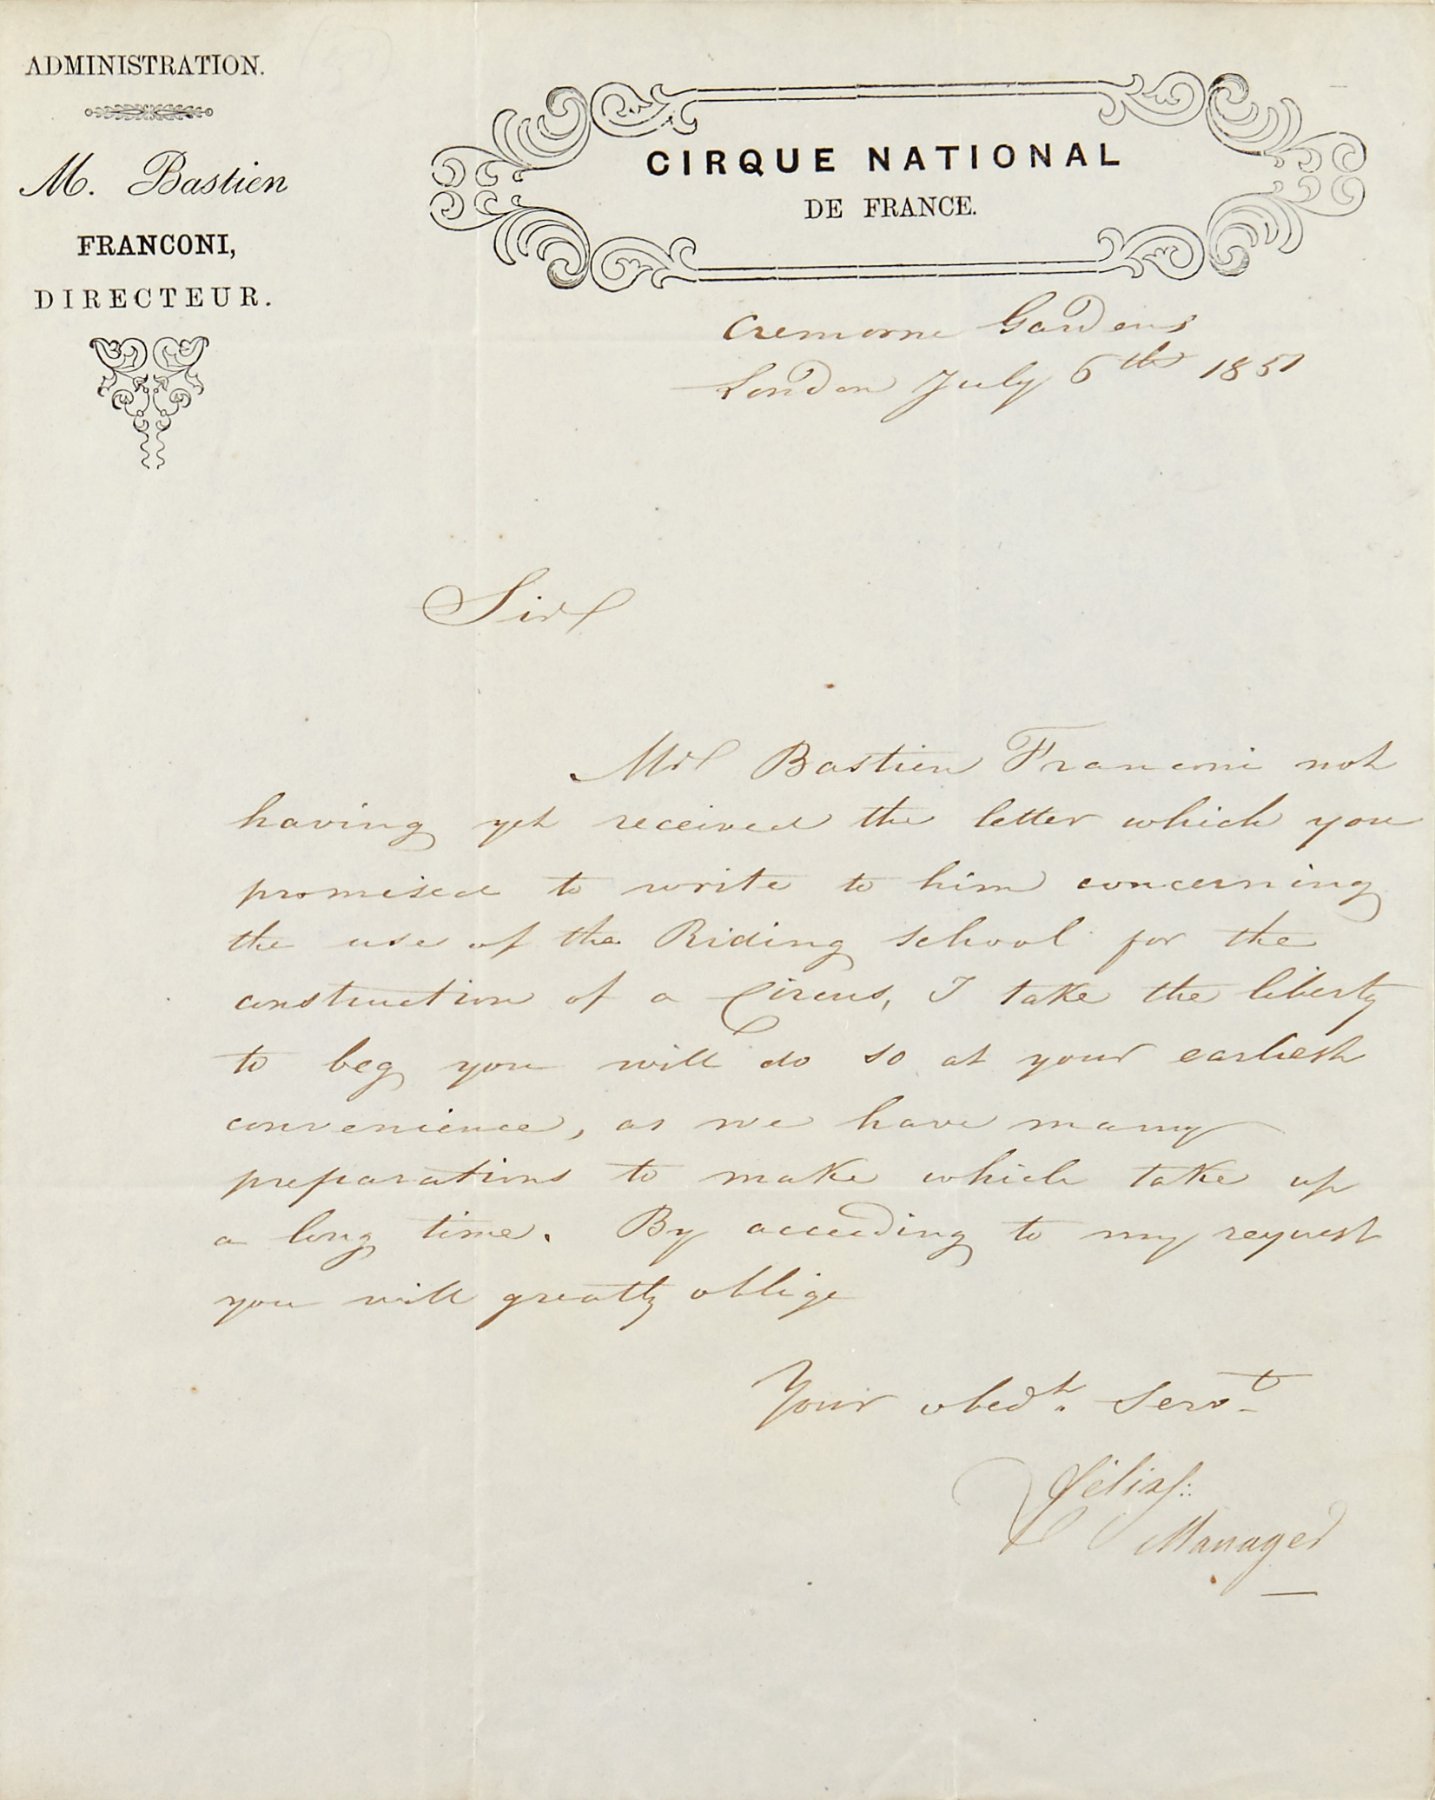 ADMINISTRATION.
M. Bastien
FRANCONI,
DIRECTEUR.
CIRQUE NATIONAL
DE FRANCE.
Cremorne Gardens
London July 6th 1851
Sir
Mr Bastien Franconi not
having yet received the letter which you
promised to write to him concerning
the use of the Riding school for the
construction of a Circus, I take the liberty
to beg you will do so at your earliest
convenience, as we have many
preparations to make which take up
a long time. By acceeding to my request
you will greatly oblige
Your obedt. Servt
Manager